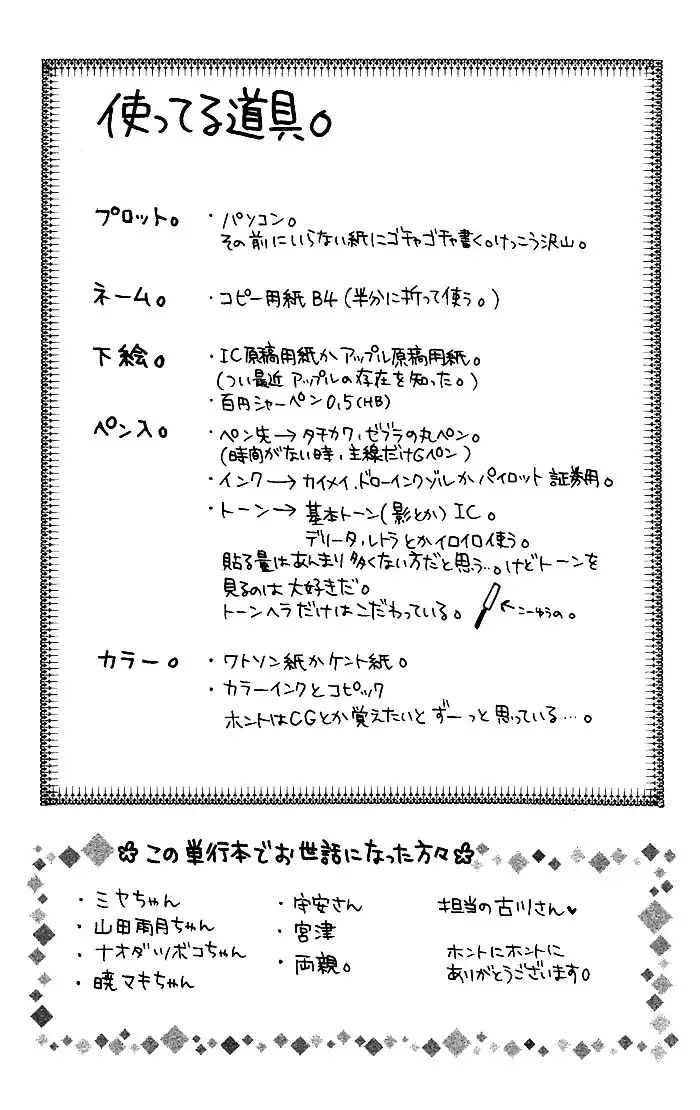 使ってる道具。
プロット。 ・パソコン。
その前にいらない紙にゴチャゴチャ書く。けっこう沢山。
ネーム。 ・コピー用紙 B4 (半分に折って使う。)
下絵。 ・IC原稿用紙かアップル原稿用紙。
(つい最近アップルの存在を知った。)
・百円シャーペン 0,5 (HB)
ペン入。 ・ペン先→タチカワ、ゼブラの丸ペン。
(時間がない時、主線だけGペン)
・インク→カイメイ、ドローインクゾルか パイロット 証券用。
・トーン→ 基本トーン(影とか) IC。
デリータ、レトラとかイロイロ使う。
貼る量はあんまり多くない方だと思う…。けどトーンを
見るのは大好きだ。
トーンヘラだけはこだわっている。 ←こーゆうの。
カラー。 ・ワトソン紙かケント紙。
・カラーインクとコピック
ホントはCGとか覚えたいとずーっと思っている…。
この単行本でお世話になった方々
・ミヤちゃん
・山田雨月ちゃん
・ナオダツボコちゃん
・暁マキちゃん
・宇安さん
・宮津
・両親。
担当の古川さん♥
ホントにホントに
ありがとうございます。